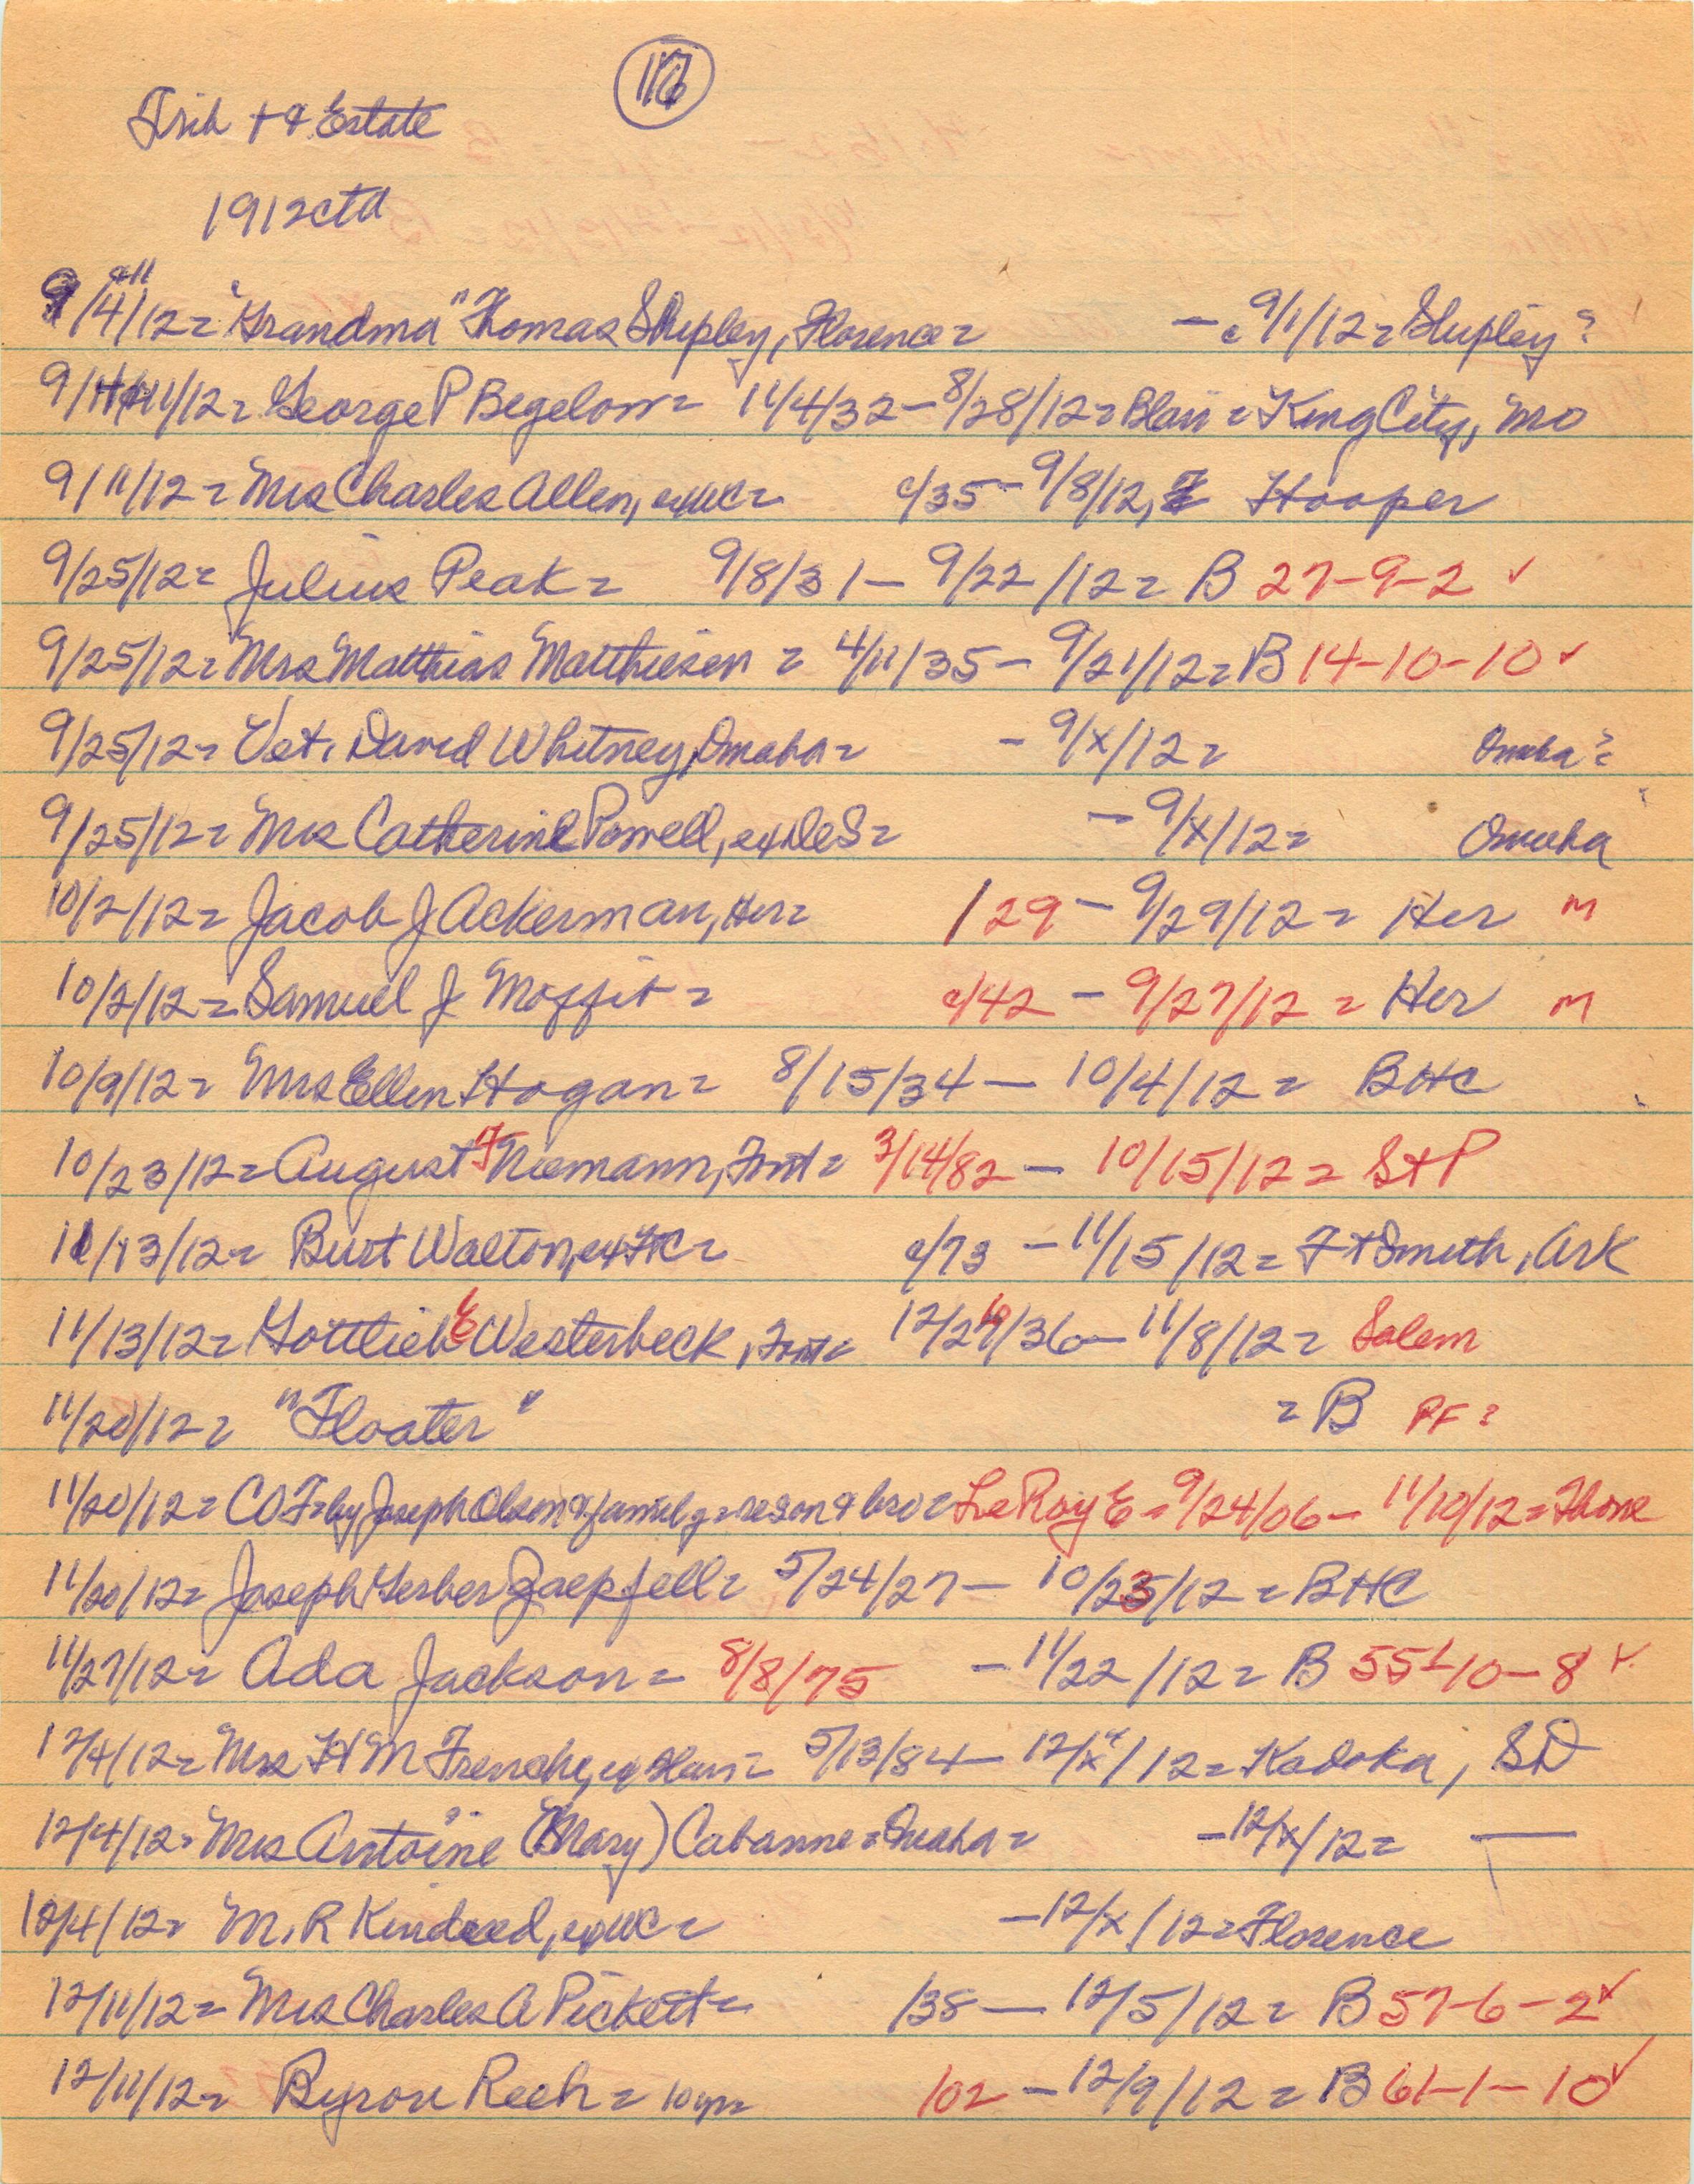 116
Trib + & Estate
1912ctd
9/4/12= "Grandma" Thomas Shipley, Florence= - c 9/1/12= Shipley?
9/11/12= George P Begelow= 11/4/32-8/28/12= Blair= King City, Mo
9/11/12= Mrs Charles Allen, exWC= c/35-9/8/12, Hooper
9/25/12= Julius Peak= 9/8/31- 9/22/12= B 27-9-2 ✓
9/25/12= Mrs Matthias Matthiesen = 4/11/35- 9/21/12= B 14-10-10 ✓
9/25/12= Vet. David Whitney, Omaha= - 9/X/12= Omaha?
9/25/12= Mrs Catherine Powell, exDeS= - 9/X/12= Omaha
10/2/12= Jacob J Ackerman, Her= /29 - 9/29/12= Her M
10/2/12= Samuel J Moffit= c/42 - 9/27/12 = Her M
10/9/12= Mrs Ellen Hogan= 8/15/34- 10/4/12= BHC
10/23/12= August F Niemann, Font= 3/14/82 - 10/15/12= StP
11/13/12= Burt Walton, exFtC= c/73 - 11/15/12= Ft Smith, Ark
11/13/12= Gottlieb E Westerbeck, Font= 12/26/36-11/8/12= Salem
11/20/12= "Floater" = B PF=
11/20/12= COT=by Joseph Olson & family=re son & bro= LeRoy E= 9/24/06- 11/10/12= Thone
11/20/12= Joseph Gerber Zaepfell= 5/24/27- 10/23/12= BHC
11/27/12= Ada Jackson= 8/8/75 -11/22/12= B 55-10-8 ✓
12/4/12= Mrs H M French, ex Blair= 5/13/84- 12/X/12= Kadoka, SD
12/4/12= Mrs Antoine (Mary) Cabanne=Omaha= -12/X/12= —
12/4/12= M. R Kindred, exWC= -12/X/12= Florence
12/11/12= Mrs Charles A Pickett= /38- 12/5/12= B 57-6-2 ✓
12/11/12= Byron Reeh= 10yr= /02 -12/9/12= B 61-1-10 ✓